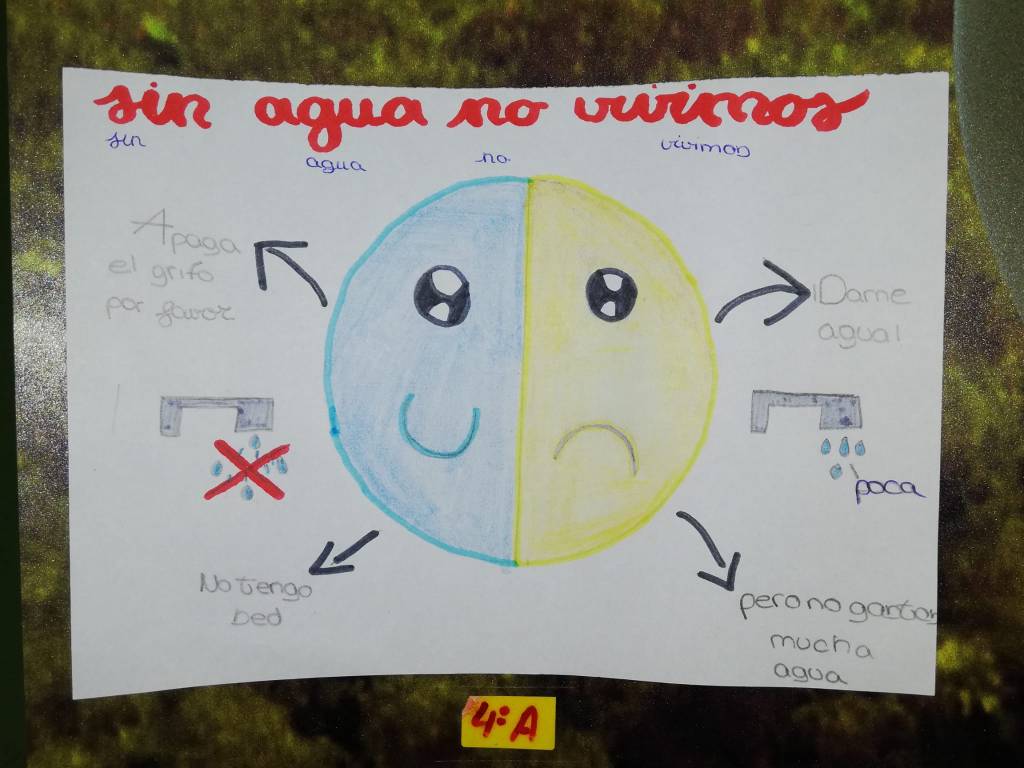 sin agua no vivimos
sin agua no vivimos
Apaga
el grifo
por favor
¡Dame
agua!
poca
No tengo
sed
pero no gastar
mucha
agua
4:A